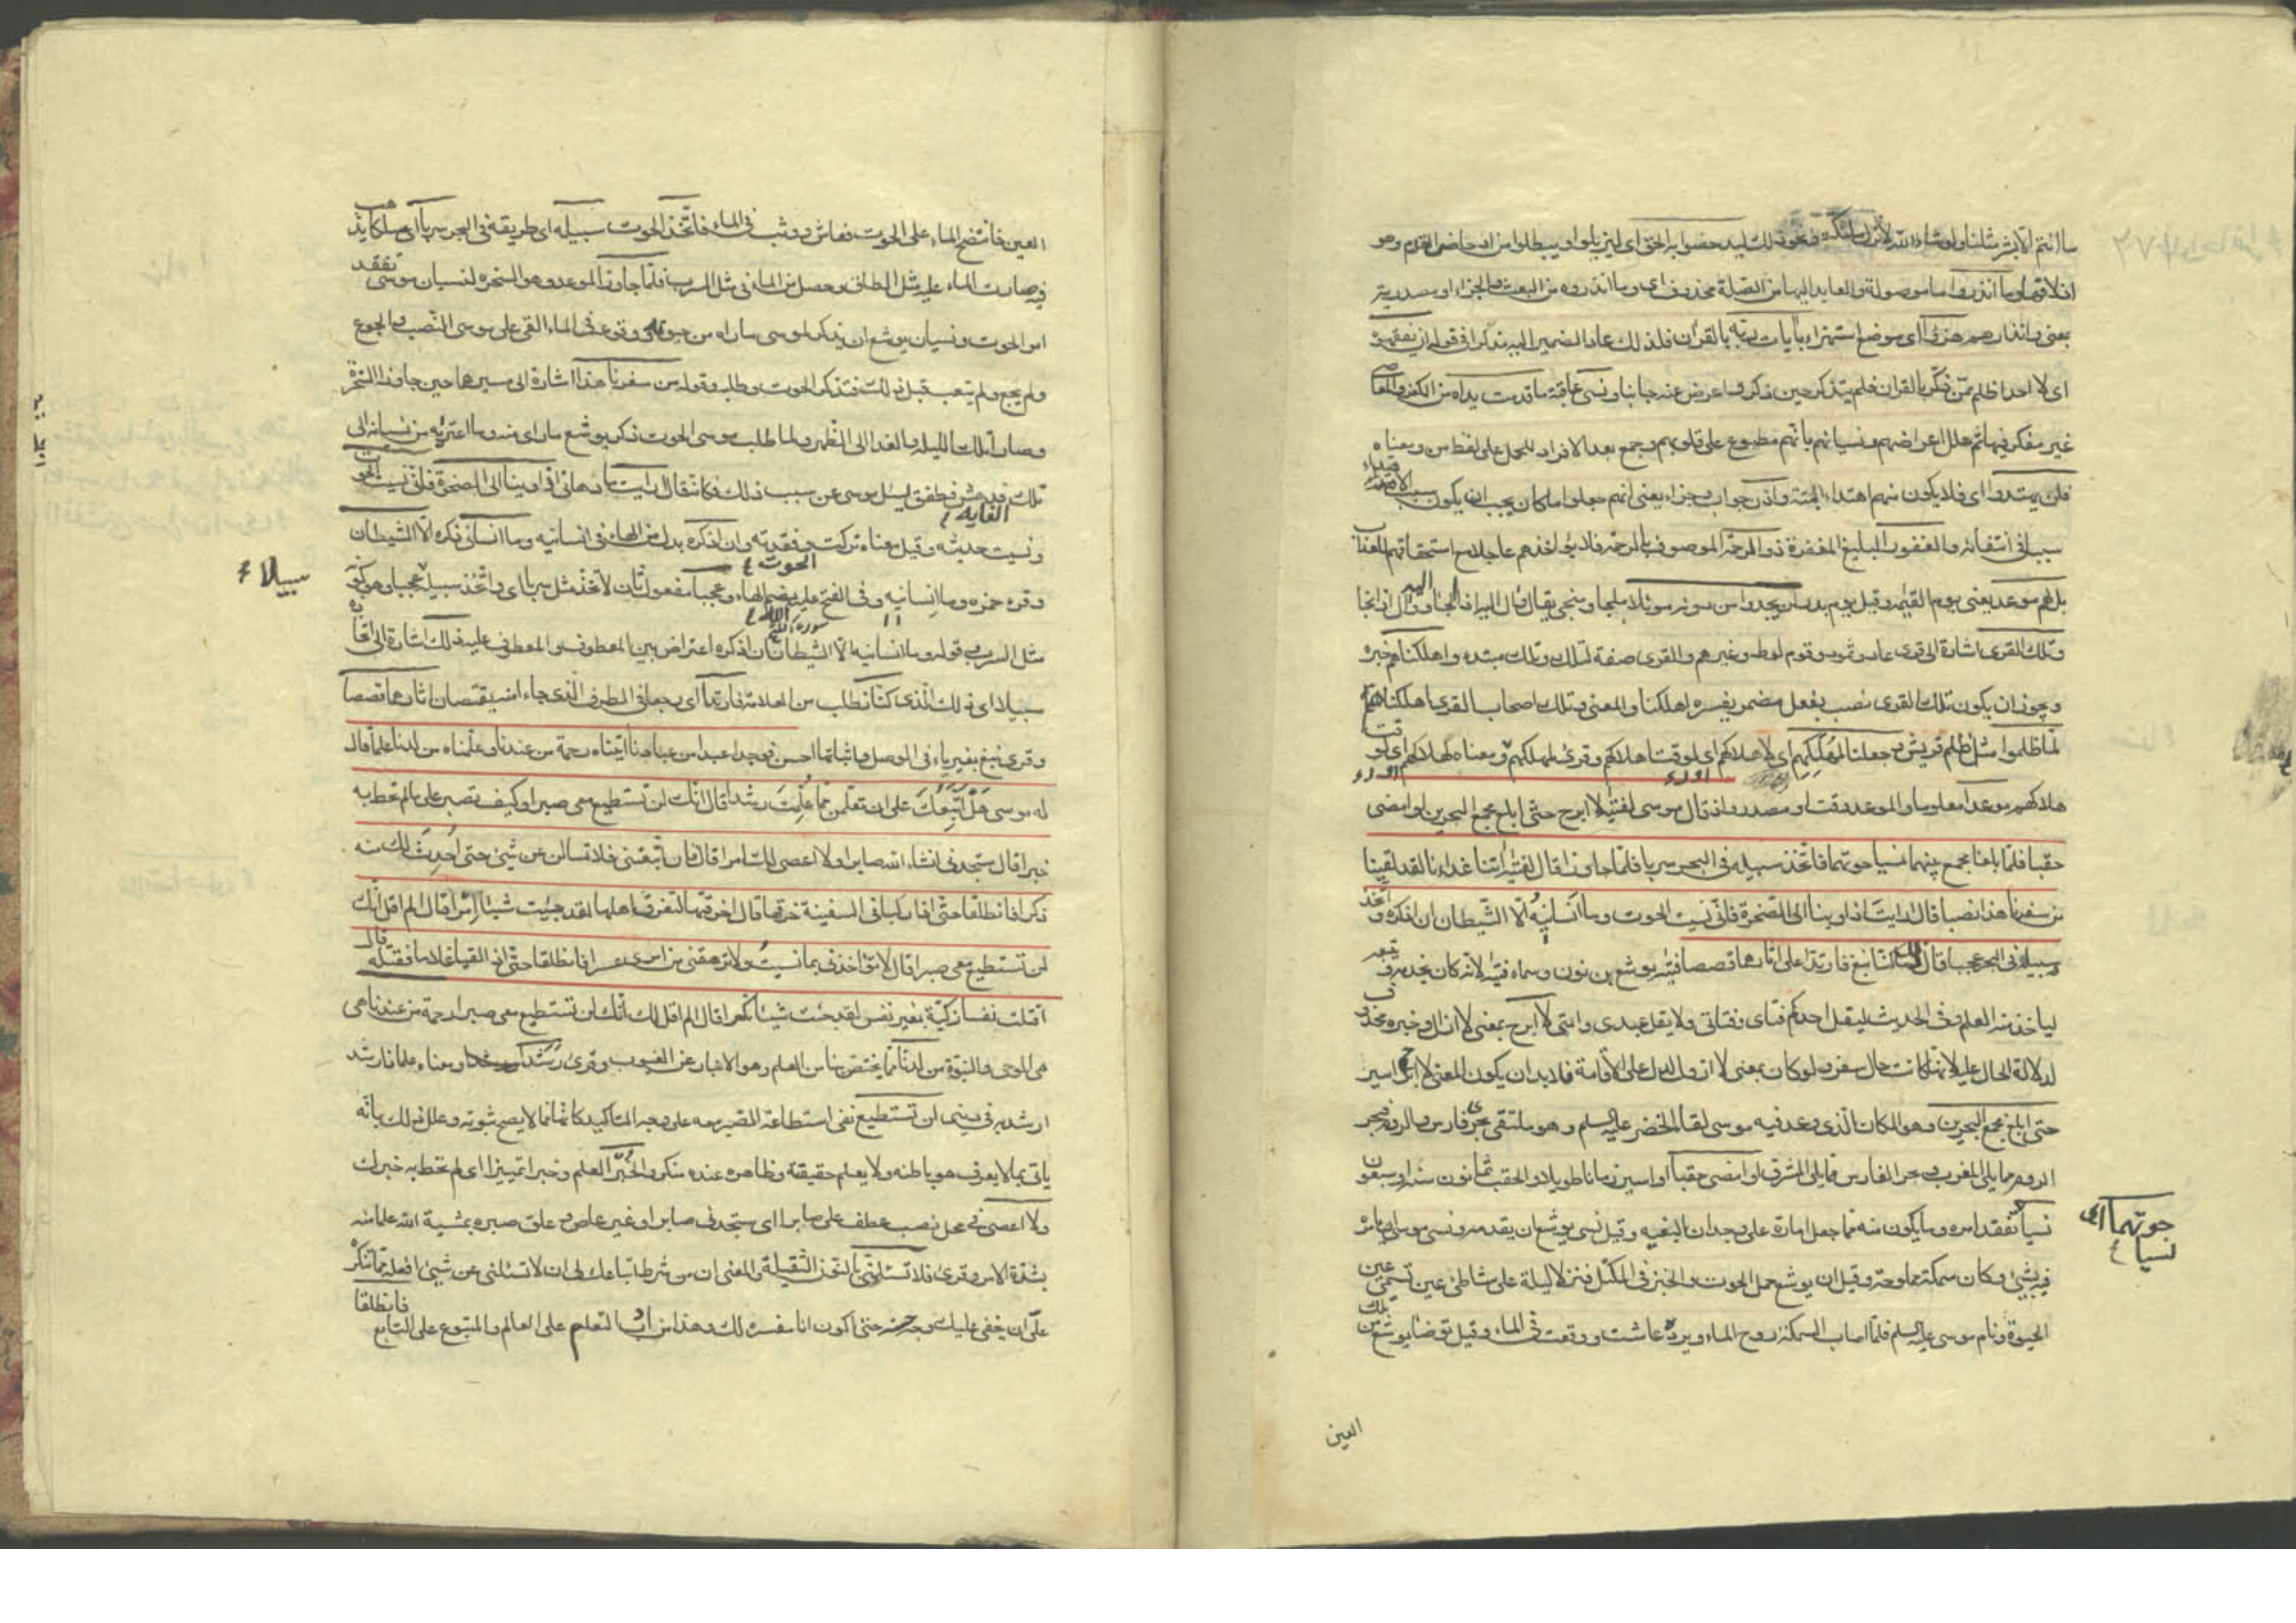 ما انتم الا بشر مثلنا ولو شاء الله لانزل ملئكة ونحو ذلك ليدحضوا به الحق اى ليزيلوا ويبطلوا من ادحاض القدم وهو
ازلاقها وما انذروا ما موصولة والعايد اليها من الصلة محذوف اى وما انذروه من البعث والجزاء او مصدرية
بمعنى وانذارهم هزوا اى موضع استهزاء بايات ربه بالقران فلذلك عاد الضمير اليه مذكرا فى قوله ان يفقهوه
اى لا احد اظلم ممن ذكر بالقران فلم يتذكر حين ذكر واعرض عنه جانبا ونسى عاقبة ما قدمت يداه من الكفر والمعاصى
غير مفكر فيها ثم علل اعراضهم ونسيانهم بانهم مطبوع على قلوبهم وجمع بعد الافراد للحمل على لفظ من ومعناه
فلن يهتدوا اى فلا يكون منهم اهتداء البتة واذن جواب وجزاء يعنى انهم جعلوا ما كان يجب ان يكون سبب الاهتداء
سببا فى انتفائه والغفور البليغ المغفرة ذو الرحمة الموصوف بالرحمة فلا يؤاخذهم عاجلا مع استحقاقهم العذاب
بل لهم موعد يعنى يوم القيمة وقيل يوم بدر لن يجدوا من دونه موئلا ملجا ومنجى يقال وال اليه اذا لجا ووال اذا نجا
وتلك القرى اشارة الى قرى عاد وثمود وقوم لوط وغيرهم والقرى صفة لتلك وتلك مبتدء واهلكناهم خبره
ويجوز ان يكون تلك القرى نصب بفعل مضمر يفسره اهلكنا والمعنى وتلك اصحاب القرى اهلكناهم
لما ظلموا مثل ظلم قريش وجعلنا لمهلكهم اى لاهلاكهم اى لوقت اهلاكهم وقرئ لمهلكهم ومعناه لهلاكهم اى لوقت
هلاكهم موعدا معلوما والموعد وقت او مصدر واذ قال موسى لفتيه لا ابرح حتى ابلغ مجمع البحرين او امضى
حقبا فلما بلغا مجمع بينهما نسيا حوتهما فاتخذ سبيله فى البحر سربا فلما جاوزا قال لفتيه اتنا غداءنا لقد لقينا
من سفرنا هذا نصبا قال ارايت اذ اوينا الى الصخرة فانى نسيت الحوت وما انسانيه الا الشيطان ان اذكره واتخذ
سبيله فى البحر عجبا قال ذلك ما كنا نبغ فارتدا على اثارهما قصصا فتيه يوشع بن نون وسماه فتيه لانه كان يخدمه ويتبعه
لياخذ منه العلم وفى الحديث ليقل احدكم فتاى وفتاتى ولا يقل عبدى وامتى لا ابرح بمعنى لا ازال وخبره محذوف
لدلالة الحال عليه لانها كانت حال سفر ولو كان بمعنى لا ازول لدل على الاقامة فلا بد ان يكون المعنى لا ابرح اسير
حتى ابلغ مجمع البحرين وهو المكان الذى وعد فيه موسى لقاء الخضر عليه السلم وهو ملتقى بحرى فارس والروم فبحر
الروم مما يلى المغرب وبحر الفارس مما يلى المشرق او امضى حقبا او اسير زمانا طويلا والحقب ثمانون سنة او سبعون
نسيا تفقد امره وما يكون منه مما جعل امارة على وجدان البغيه وقيل نسى يوشع ان يقدمه ونسى موسى ان يامره
حوتهما اى
نسيا
فيه بشئ وكان سمكة مملوحة وقيل ان يوشع حمل الحوت والخبز فى المكتل فنزلا ليلة على شاطئ عين تسمى عين
الحيوة ونام موسى عليه السلم فلما اصاب السمكة روح الماء وبرده عاشت ووقعت فى الماء وقيل توضا يوشع من تلك
العين
العين فانتضح الماء على الحوت فعاش ووثب فى الماء فاتخذ الحوت سبيله اى طريقه فى البحر سربا اى مسلكا يذهب
فيه صارت الماء عليه مثل الطاق وحصل من الماء فى مثل السرب فلما جاوزا الموعد وهو الصخرة لنسيان موسى تفقد
امر الحوت ونسيان يوشع ان يذكر لموسى ما راه من حيوته ووقوعه فى الماء القى على موسى النصب والجوع
ولم يجع ولم يتعب قبل ذلك فتذكر الحوت وطلبه وقوله من سفرنا هذا اشارة الى سيرهما حين جاوزا الصخرة
وسارا تلك الليلة والغد الى الظهر ولما طلب موسى الحوت ذكر يوشع ما راى منه وما اعتريه من نسيانه الى
تلك الغاية فدهش فطفق يسئل موسى عن سبب ذلك فكانه قال ارايت ما دهانى اذ اوينا الى الصخرة فانى نسيت الحوت
ونسيت حديثه وقيل معناه تركت وفقدته وان اذكره بدل من الهاء فى انسانيه وما انسانى ذكره الا الشيطان
سبيلا
وقرء حمزه وما انسانيه وفى الفتح عليه بضم الهاء وعجبا مفعول ثان لاتخذ مثل سربا اى واتخذ سبيله سبيلا عجبا وهو كونه
مثل السرب وقوله وما انسانيه الا الشيطان ان اذكره اعتراض بين المعطوف والمعطوف عليه ذلك اشارة الى اتخاذه
سبيلا اى ذلك الذى كنا نطلب من العلامة فارتدا اى رجعا فى الطريق الذى جاءا منه يقتصان اثارهما قصصا
وقرئ نبغ بغير ياء فى الوصل واثباتها احسن فوجدا عبدا من عبادنا اتيناه رحمة من عندنا وعلمناه من لدنا علما قال
له موسى هل اتبعك على ان تعلمن مما علمت رشدا قال انك لن تستطيع معى صبرا وكيف تصبر على ما لم تحط به
خبرا قال ستجدنى انشاء الله صابرا ولا اعصى لك امرا قال فان اتبعتنى فلا تسالن عن شئ حتى احدث لك منه
ذكرا فانطلقا حتى اذا ركبا فى السفينة خرقها قال اخرقتها لتغرق اهلها لقد جئت شيئا امرا قال الم اقل انك
لن تستطيع معى صبرا قال لا تؤاخذنى بما نسيت ولا ترهقنى من امرى عسرا فانطلقا حتى اذا لقيا غلاما فقتله قال
اقتلت نفسا زكية بغير نفس لقد جئت شيئا نكرا قال الم اقل لك انك لن تستطيع معى صبرا رحمة من عندنا هى
هى الوحى والنبوة من لدنا مما يختص بنا من العلم وهو الاخبار عن الغيوب وقرئ رشدا ومعناه علما ذا رشد
ارشد به فى دينى لن تستطيع نفى استطاعة الصبر معه على وجه التاكيد كانها مما لا يصح ثبوته وعلل ذلك بانه
ياتى بما لا يعرف هو باطنه ولا يعلم حقيقته وظاهره عنده منكر والخبر العلم وخبرا تمييز اى لم تحط به خبرك
ولا اعصى فى محل نصب عطف على صابرا اى ستجدنى صابرا وغير عاص وعلق صبره بمشية الله علما منه
بشدة الامر وقرئ فلا تسئلنى بالنون الثقيلة والمعنى ان من شرط اتباعك لى ان لا تسئلنى عن شئ افعله مما تنكره
على ان يخفى عليك وجهه حتى اكون انا مفسره لك وهذا من اداب المتعلم على العالم والمتبوع على التابع فانطلقا